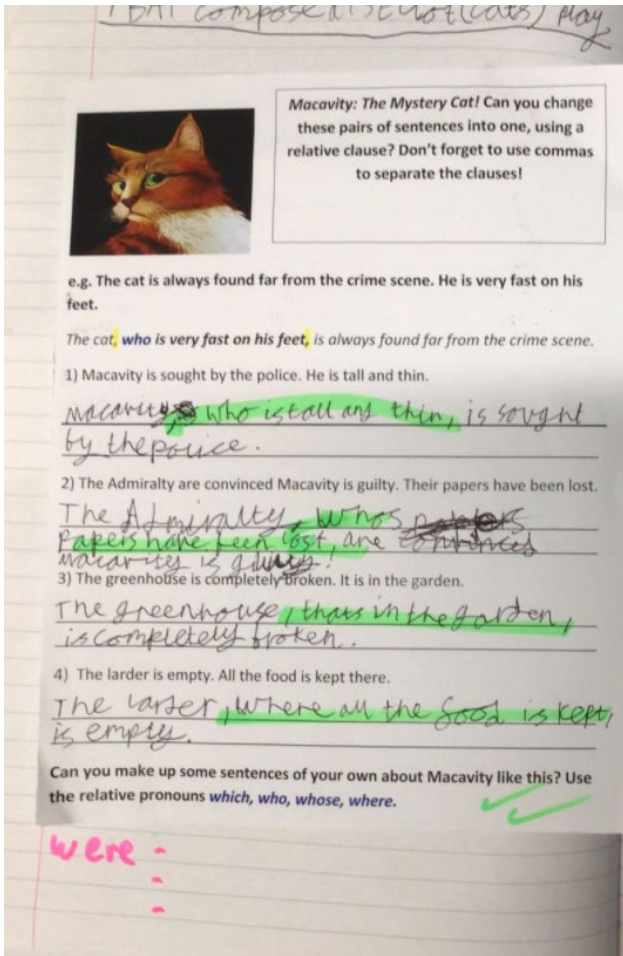 TBAT compose a TS Eliot (cats) play
Macavity: The Mystery Cat! Can you change
these pairs of sentences into one, using a
relative clause? Don't forget to use commas
to separate the clauses!
e.g. The cat is always found far from the crime scene. He is very fast on his
feet.
The cat, who is very fast on his feet, is always found far from the crime scene.
1) Macavity is sought by the police. He is tall and thin.
Macavity, who is tall and thin, is sought
by the police.
2) The Admiralty are convinced Macavity is guilty. Their papers have been lost.
The Admiralty, whos
Papers have been lost, are convinced
Macavity is guilty.
3) The greenhouse is completely broken. It is in the garden.
The greenhouse, thats in the garden,
is completely broken.
4) The larder is empty. All the food is kept there.
The larder, where all the food is kept,
is empty.
Can you make up some sentences of your own about Macavity like this? Use
the relative pronouns which, who, whose, where.
were -
-
-